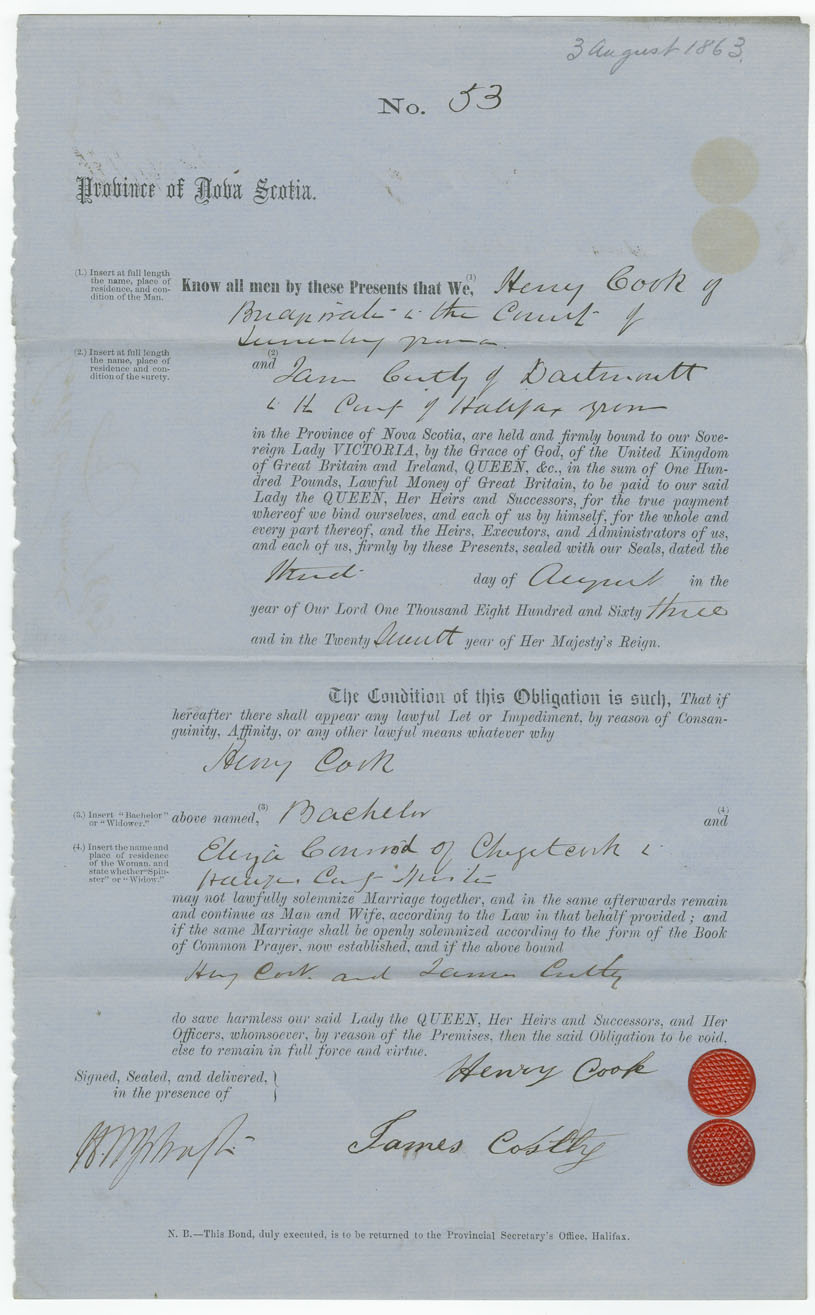 3 August 1863.
No. 53
Province of Nova Scotia.
(1.) Insert at full length
the name, place of
residence, and con-
dition of the Man.
Know all men by these Presents that We,(1) Henry Cook of
in the County of
(2.) Insert at full length
the name, place of
residence and con-
dition of the surety.
(2)
and James Costly of Dartmouth
in the County of Halifax yeoman
in the Province of Nova Scotia, are held and firmly bound to our Sove-
reign Lady VICTORIA, by the Grace of God, of the United Kingdom
of Great Britain and Ireland, QUEEN, &c., in the sum of One Hun-
dred Pounds, Lawful Money of Great Britain, to be paid to our said
Lady the QUEEN, Her Heirs and Successors, for the true payment
whereof we bind ourselves, and each of us by himself, for the whole and
every part thereof, and the Heirs, Executors, and Administrators of us,
and each of us, firmly by these Presents, sealed with our Seals, dated the
third day of August in the
year of Our Lord One Thousand Eight Hundred and Sixty three
and in the Twenty Seventh year of Her Majesty's Reign.
The Condition of this Obligation is such, That if
hereafter there shall appear any lawful Let or Impediment, by reason of Consan-
guinity, Affinity, or any other lawful means whatever why
Henry Cook
(3.) Insert "Bachelor"
or "Widower."
above named,(3) Bachelor (4)
and
(4.) Insert the name and
place of residence
of the Woman, and
state whether "Spin-
ster" or "Widow."
Eliza Conrod of Chezetcook in
Halifax County Spinster
may not lawfully solemnize Marriage together, and in the same afterwards remain
and continue as Man and Wife, according to the Law in that behalf provided; and
if the same Marriage shall be openly solemnized according to the form of the Book
of Common Prayer, now established, and if the above bound
Henry Cook and James Costly
do save harmless our said Lady the QUEEN, Her Heirs and Successors, and Her
Officers, whomsoever, by reason of the Premises, then the said Obligation to be void,
else to remain in full force and virtue.
Signed, Sealed, and delivered,
in the presence of
Henry Cook
James Costly
N. B.—This Bond, duly executed, is to be returned to the Provincial Secretary's Office, Halifax.